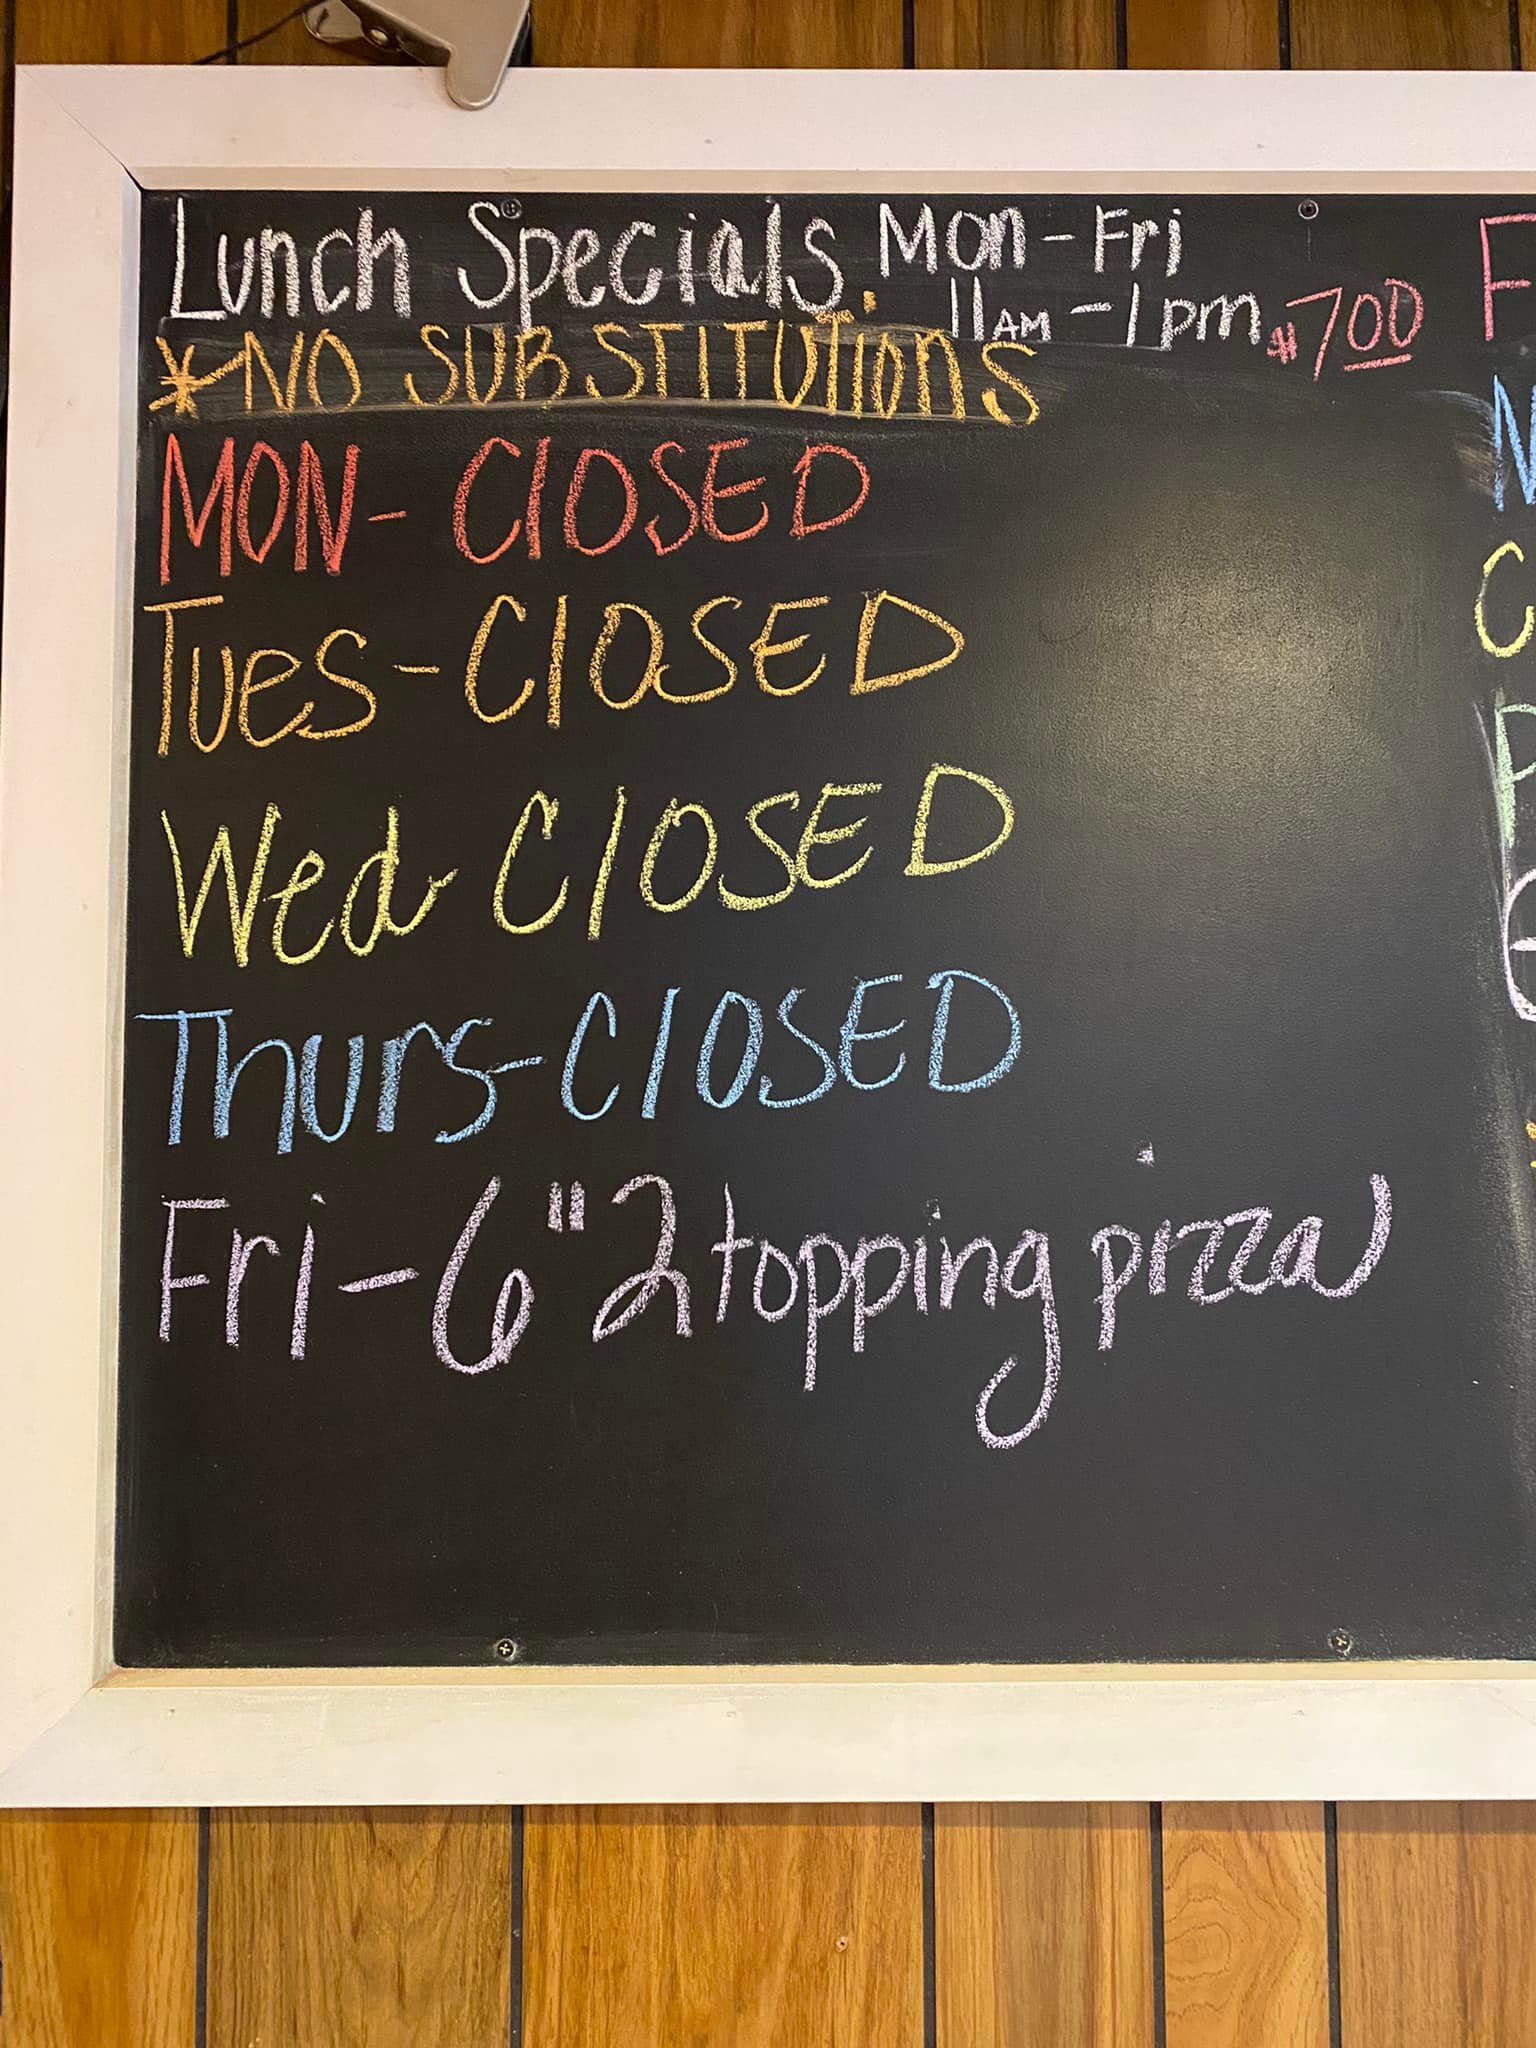 Lunch Specials Mon-Fri
11AM-1pm $7.00
*NO SUBSTITUTiONS
MON- ClOSED
Tues- ClOSED
Wed- ClOSED
Thurs- ClOSED
Fri- 6" 2 topping pizza